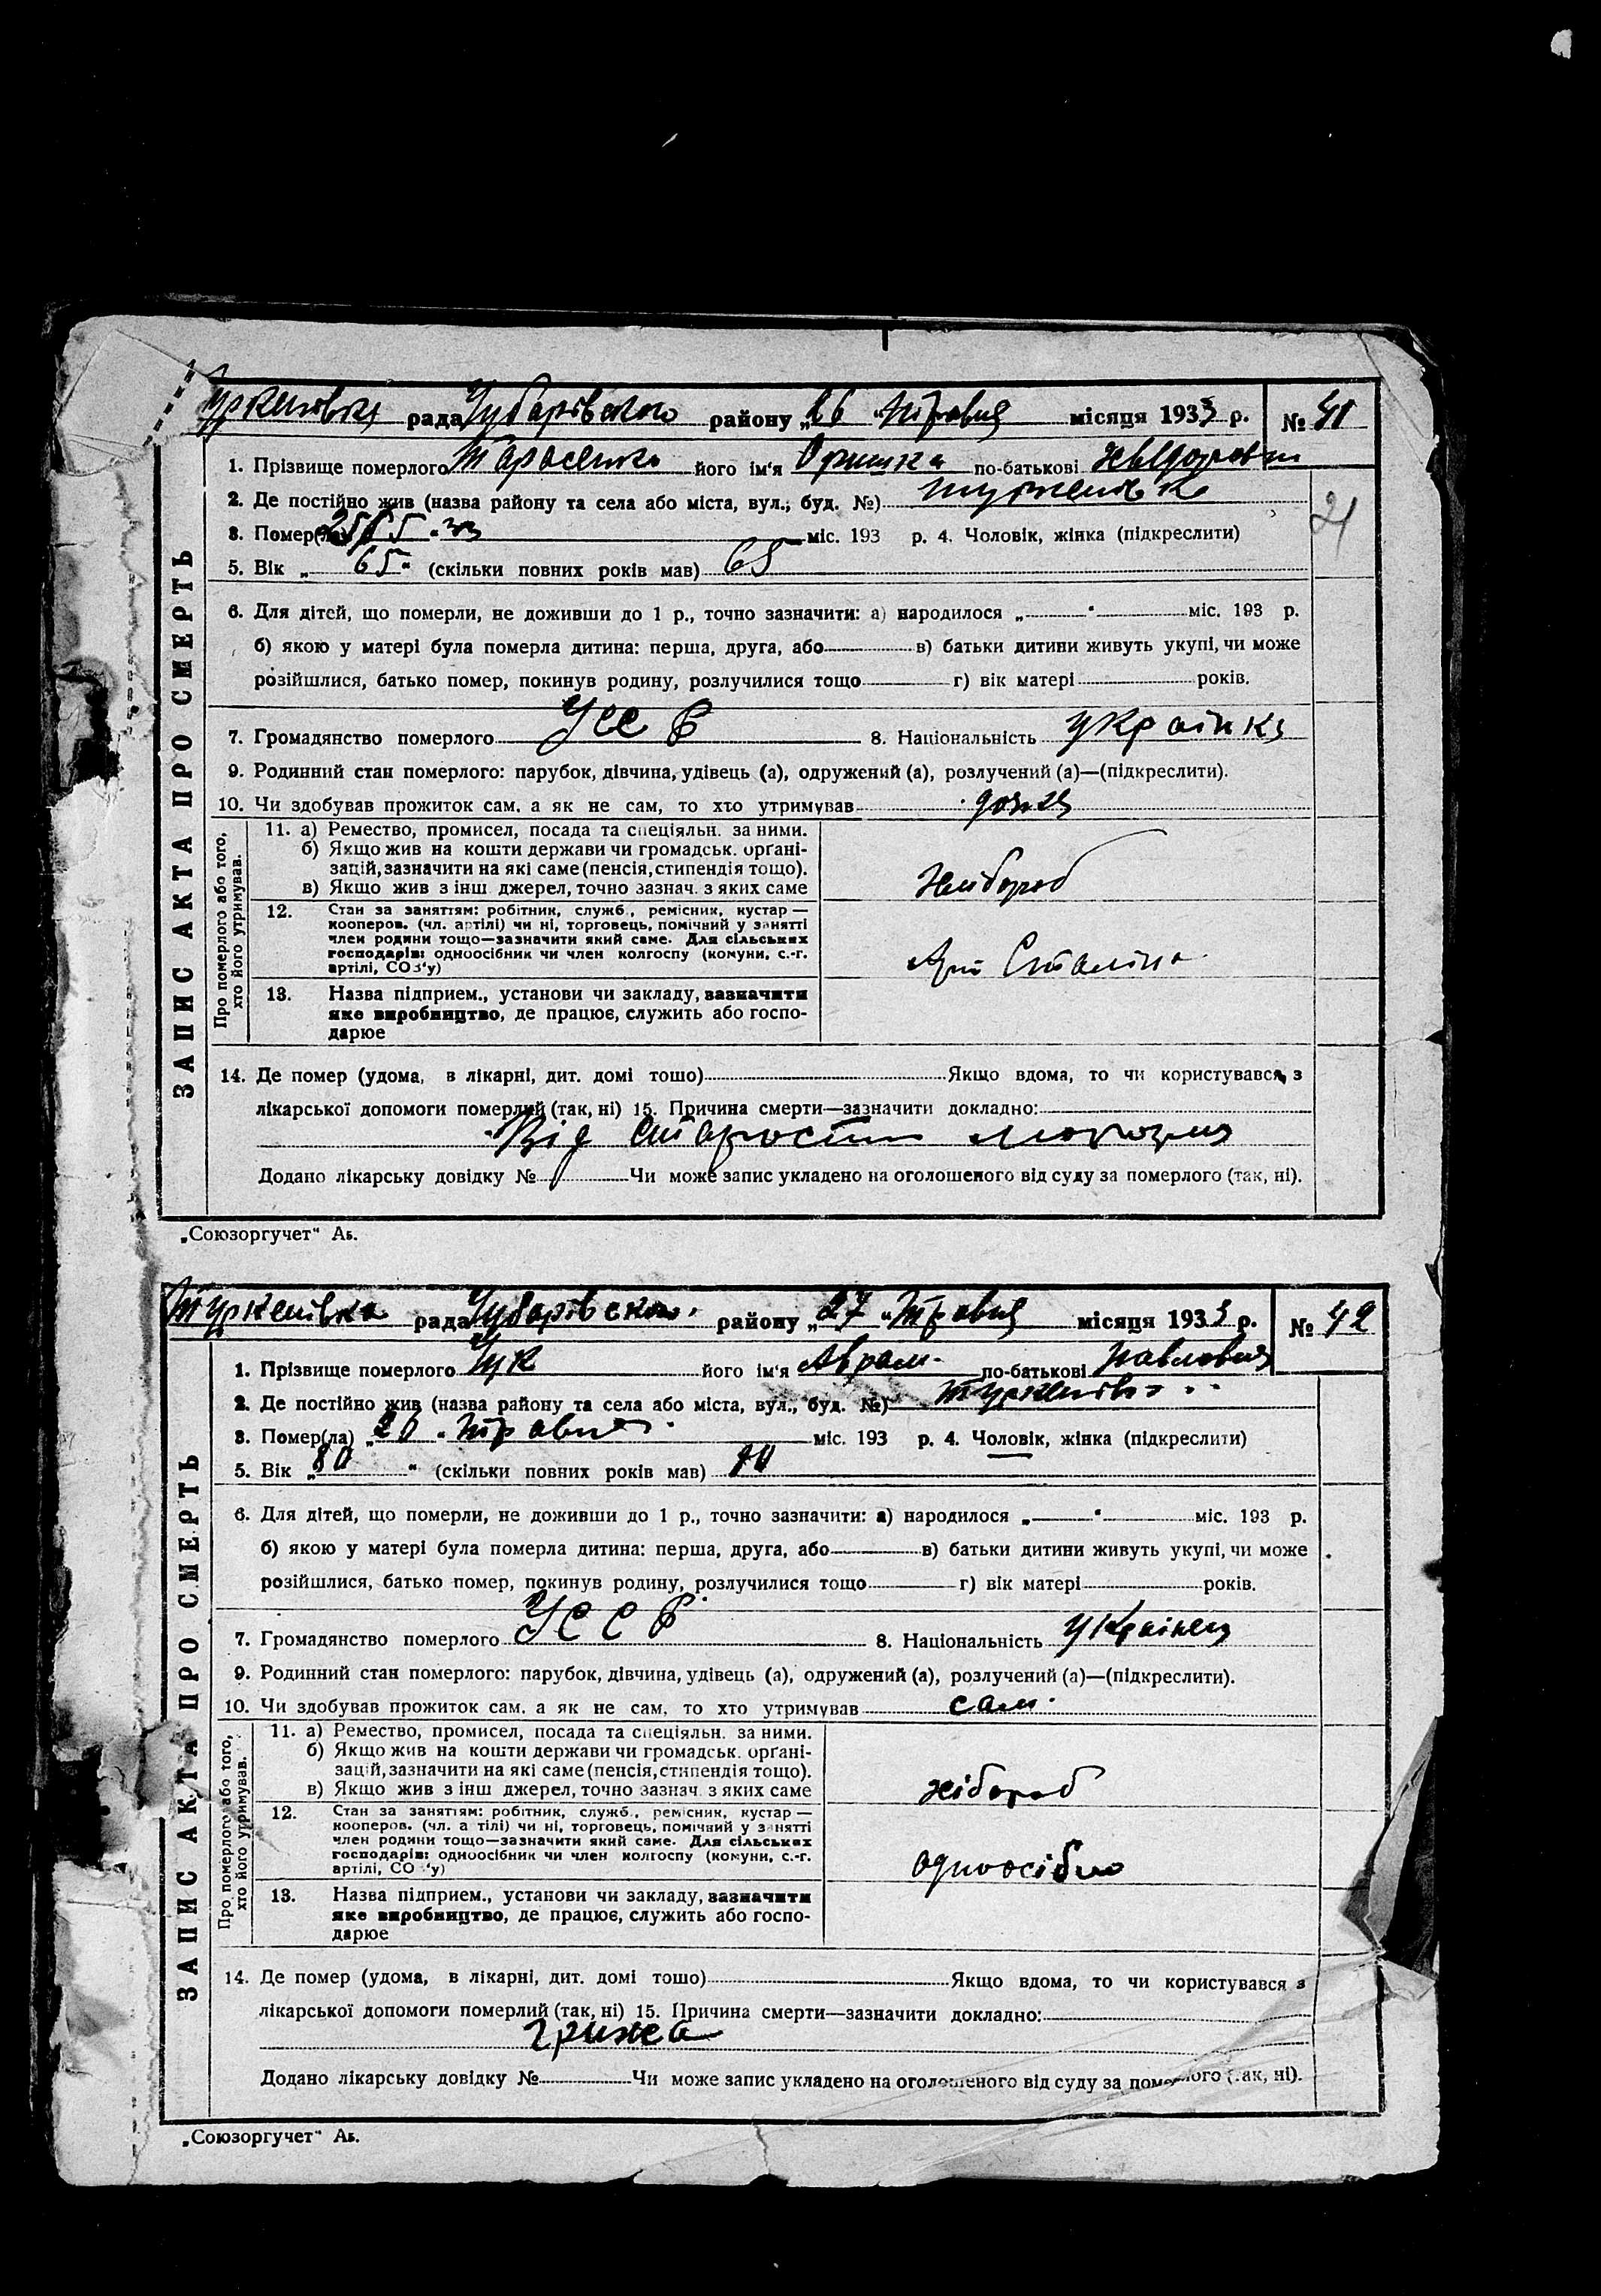 ЗАПИС АКТА ПРО СМЕРТЬ
рада Чубарівського району „26“ Травня місяця 1933 р. № 41
1. Прізвище померлого Тарасенко його ім'я Оришка по-батькові
2. Де постійно жив (назва району та села або міста, вул., буд. №) Туркенівка
3. Помер(ла) міс. 193 р. 4. Чоловік, жінка (підкреслити)
21
5. Вік „65“ (скільки повних років мав) 65
6. Для дітей, що померли, не доживши до 1 р., точно зазначити: а) народилося „ “ міс. 193 р.
б) якою у матері була померла дитина: перша, друга, або в) батьки дитини живуть укупі, чи може
розійшлися, батько помер, покинув родину, розлучилися тощо г) вік матері років.
7. Громадянство померлого УССР 8. Національність українка
9. Родинний стан померлого: парубок, дівчина, удівець (а), одружений (а), розлучений (а)—(підкреслити).
10. Чи здобував прожиток сам, а як не сам, то хто утримував
Про померлого або того, хто його утримував.
11. а) Ремество, промисел, посада та спеціяльн. за ними.
б) Якщо жив на кошти держави чи громадськ. орґані-
зацій, зазначити на які саме (пенсія, стипендія тощо).
в) Якщо жив з інш. джерел, точно зазнач. з яких саме
хлібороб
12. Стан за заняттям: робітник, служб., ремісник, кустар —
кооперов. (чл. артілі) чи ні, торговець, помічний у занятті
член родини тощо—зазначити який саме. Для сільських
господарів: одноосібник чи член колгоспу (комуни, с.-г.
артілі, СОЗ'у)
Арт Сталіна
13. Назва підприєм., установи чи закладу, зазначити
яке виробництво, де працює, служить або госпо-
дарює
14. Де помер (удома, в лікарні, дит. домі тошо) Якщо вдома, то чи користувався з
лікарської допомоги померлий (так, ні) 15. Причина смерти—зазначити докладно:
Від старости
Додано лікарську довідку № Чи може запис укладено на оголошеного від суду за померлого (так, ні).
„Союзоргучет“ Аь.
ЗАПИС АКТА ПРО СМЕРТЬ
Туркенівка рада Чубарівсько. району „27“ Травня місяця 1933 р. № 42
1. Прізвище померлого Чук його ім'я Аврам по-батькові Павлович
2. Де постійно жив (назва району та села або міста, вул., буд. №) Туркенівка
3. Помер(ла) „20“ Травня міс. 193 р. 4. Чоловік, жінка (підкреслити)
5. Вік „80“ (скільки повних років мав)
6. Для дітей, що померли, не доживши до 1 р., точно зазначити: а) народилося „ “ міс. 193 р.
б) якою у матері була померла дитина: перша, друга, або в) батьки дитини живуть укупі, чи може
розійшлися, батько помер, покинув родину, розлучилися тощо г) вік матері років.
7. Громадянство померлого УССР 8. Національність українец
9. Родинний стан померлого: парубок, дівчина, удівець (а), одружений (а), розлучений (а)—(підкреслити).
10. Чи здобував прожиток сам, а як не сам, то хто утримував сам.
Про померлого або того, хто його утримував.
11. а) Ремество, промисел, посада та спеціяльн. за ними.
б) Якщо жив на кошти держави чи громадськ. орґані-
зацій, зазначити на які саме (пенсія, стипендія тощо).
в) Якщо жив з інш. джерел, точно зазнач. з яких саме
хлібороб
12. Стан за заняттям: робітник, служб., ремісник, кустар —
кооперов. (чл. а тілі) чи ні, торговець, помічний у занятті
член родини тощо—зазначити який саме. Для сільських
господарів: одноосібник чи член колгоспу (комуни, с.-г.
артілі, СО 'у)
одноосібно
13. Назва підприєм., установи чи закладу, зазначити
яке виробництво, де працює, служить або госпо-
дарює
14. Де помер (удома, в лікарні, дит. домі тошо) Якщо вдома, то чи користувався з
лікарської допомоги померлий (так, ні) 15. Причина смерти—зазначити докладно:
грижа
Додано лікарську довідку № Чи може запис укладено на оголошеного від суду за померлого (так, ні).
„Союзоргучет“ Аь.